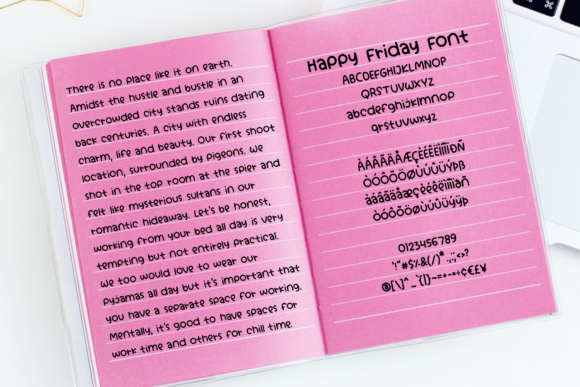 There is no place like it on earth.
Amidst the hustle and bustle in an
overcrowded city stands ruins dating
back centuries. A city with endless
charm, life and beauty. Our first shoot
location, surrounded by pigeons. We
shot in the top room at the spier and
felt like mysterious sultans in our
romantic hideaway. Let's be honest,
working from your bed all day is very
tempting but not entirely practical.
We too would love to wear our
pyjamas all day but it's important that
you have a separate space for working.
Mentally, it's good to have spaces for
work time and others for chill time.
Happy Friday Font
ABCDEFGHIJKLMNOP
QRSTUVWXYZ
abcdefghijklmnop
qrstuvwxyz
ÀÁÂÃÄÅÆÇÈÉÊËÌÍÎÏÐÑ
ÒÓÔÕÖØÙÚÛÜÝÞß
àáâãäåæçèéêëìíîïðñ
òóôõöøùúûüýÿþ
0123456789
'!"#$%&(/)* .,:;<>?
®[\]^_`{|}~=+-×÷¢€£¥
⌘